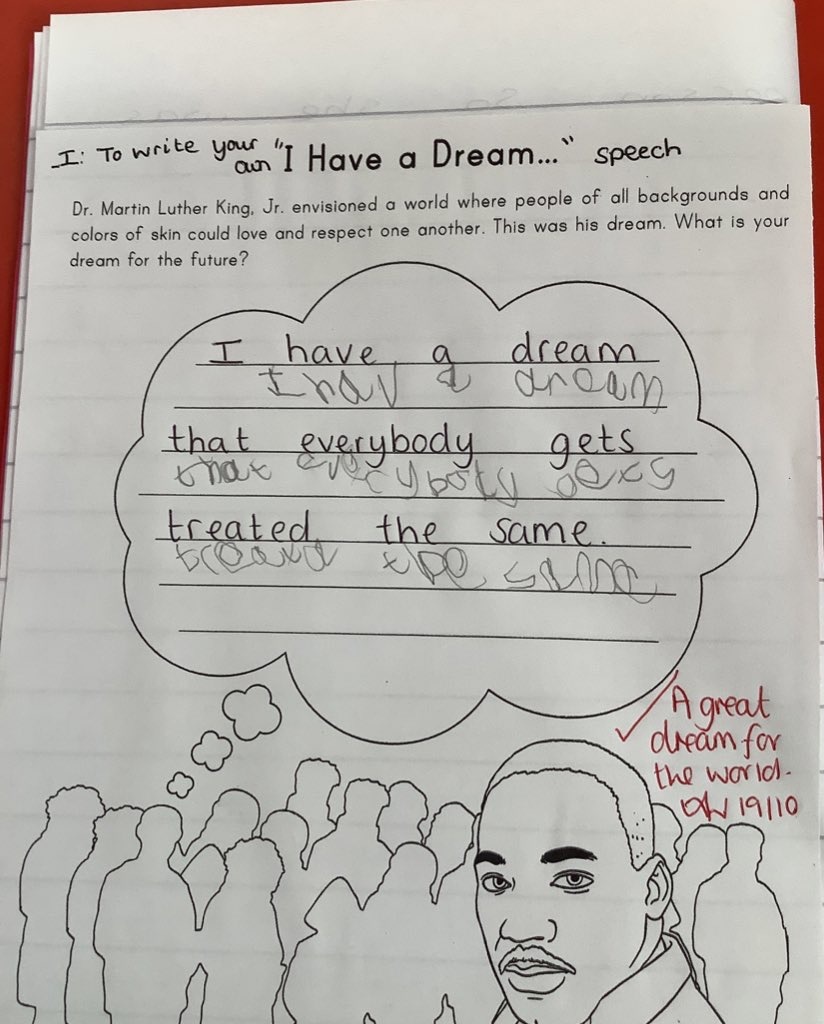 I: To write your own "I Have a Dream..." speech
Dr. Martin Luther King, Jr. envisioned a world where people of all backgrounds and
colors of skin could love and respect one another. This was his dream. What is your
dream for the future?
I have a dream
I hav a dream
that everybody gets
that everyboty gets
treated the same.
the same
A great
dream for
the world.
19/10